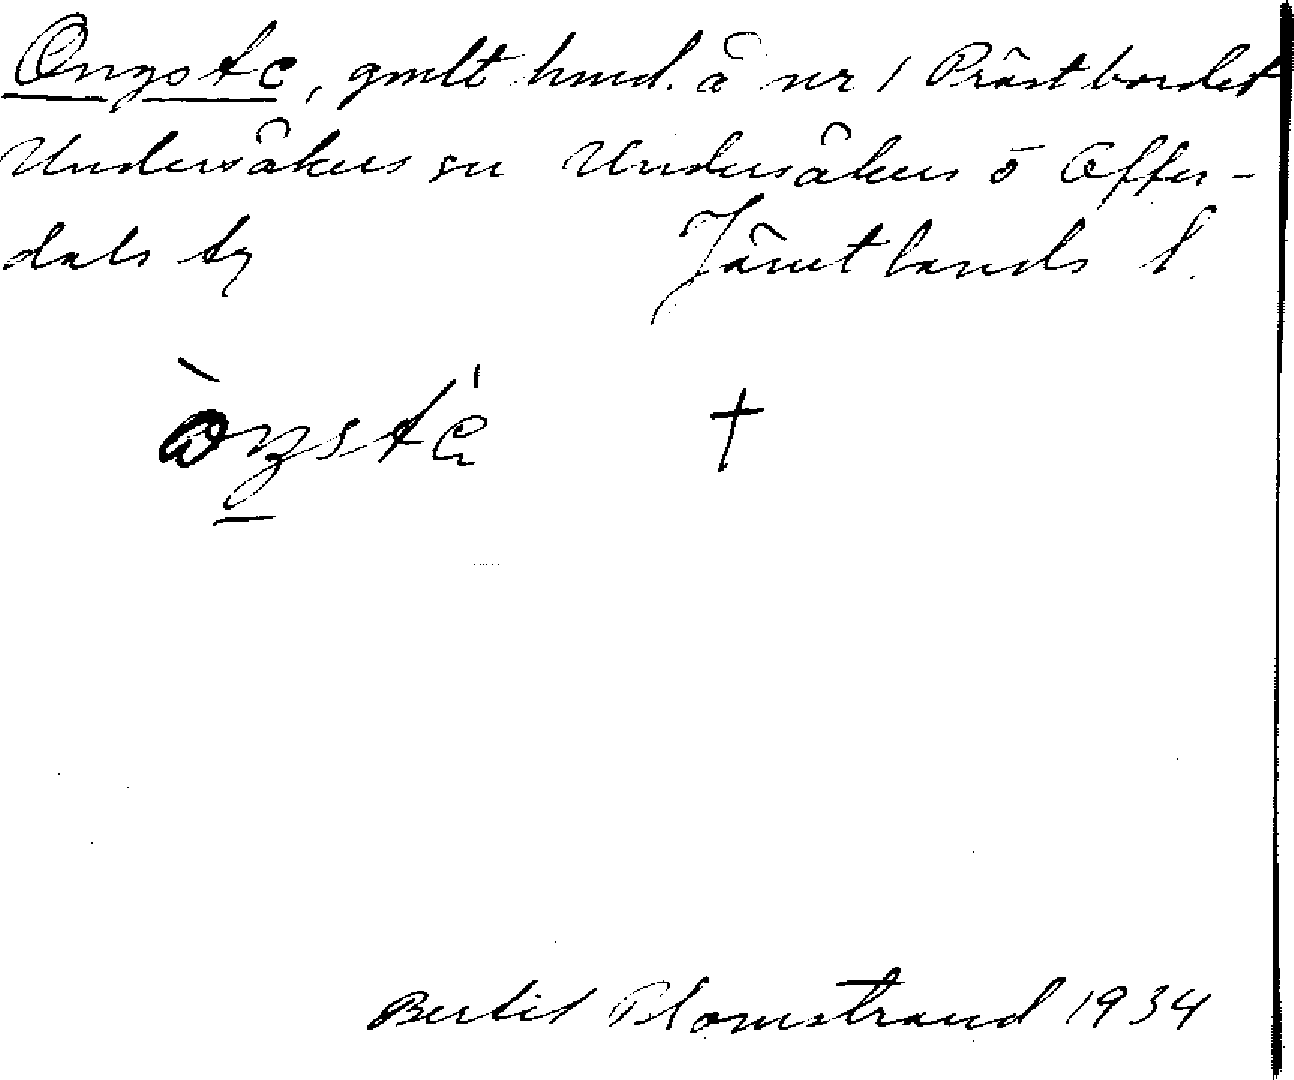 Ongste, gmlt hmd. å nr 1 Prästbordet
Undersåkers sn Undersåkers o Offer-
dals tg Jämtlands l.
†
Bertil Blomstrand 1934